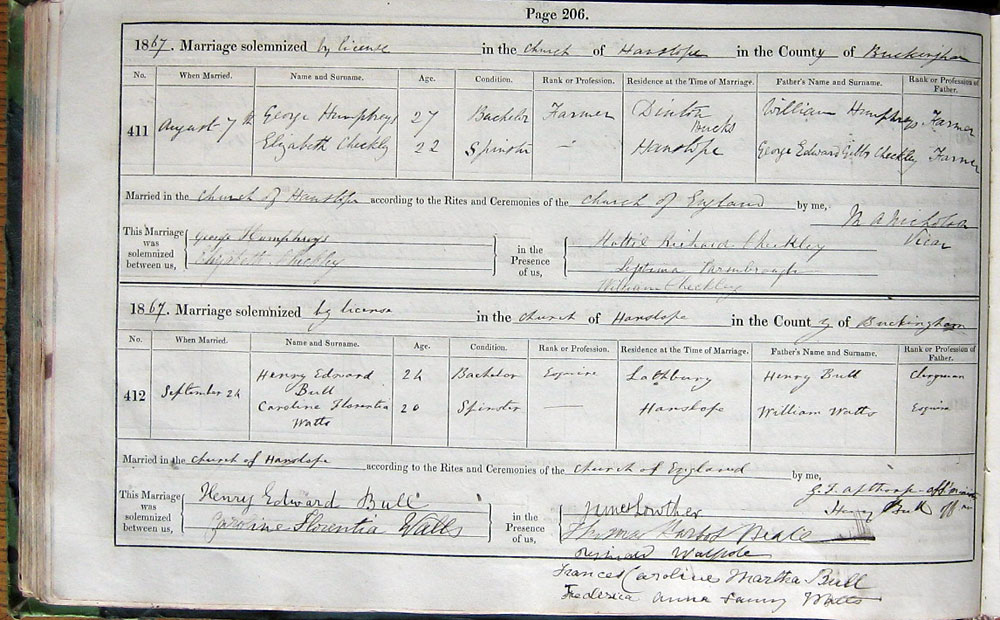 Page 206.
1867. Marriage solemnized by license in the Church of Hanslope in the County of Buckingham
No. When Married. Name and Surname. Age. Condition. Rank or Profession. Residence at the Time of Marriage. Father's Name and Surname. Rank or Profession of Father.
411 August 7th George Humphreys 27 Bachelor Farmer Dinton Bucks William Humphreys Farmer
Elizabeth Checkley 22 Spinster — Hanslope George Edward Gibbs Checkley Farmer
Married in the Church of Hanslope according to the Rites and Ceremonies of the Church of England by me,
M A Nicholson
Vicar
This Marriage was solemnized between us, George Humphreys
Elizabeth Checkley
in the Presence of us, Richard Checkley
Septima
William Checkley
1867. Marriage solemnized by license in the Church of Hanslope in the County of Buckingham
No. When Married. Name and Surname. Age. Condition. Rank or Profession. Residence at the Time of Marriage. Father's Name and Surname. Rank or Profession of Father.
412 September 24 Henry Edward Bull 24 Bachelor Esquire Lathbury Henry Bull Clergyman
Caroline Florentia Watts 20 Spinster — Hanslope William Watts Esquire
Married in the Church of Hanslope according to the Rites and Ceremonies of the Church of England by me,
G. F. Apthorp
Henry Bull
This Marriage was solemnized between us, Henry Edward Bull
Caroline Florentia Watts
in the Presence of us, James Lowther
Thomas Beale
Reginald Walpole
Frances Caroline Martha Bull
Frederica Anna Fanny Watts